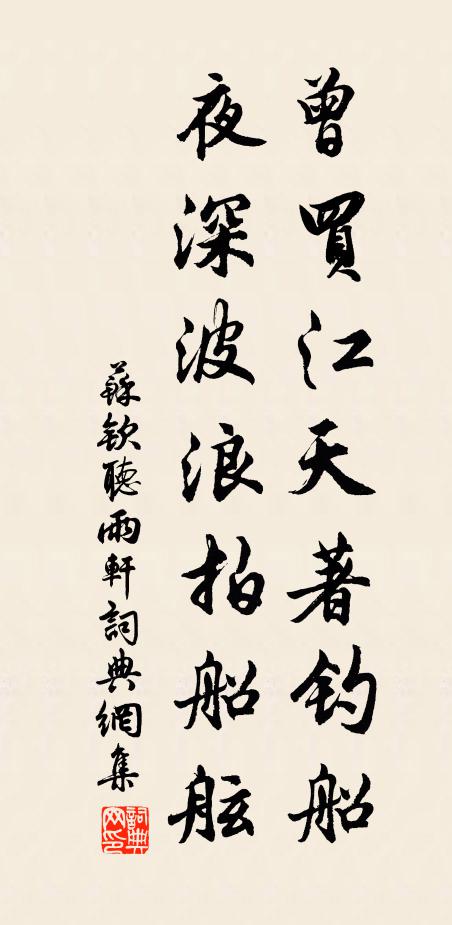 曾買江天著釣船
夜深波浪拍船舷
蘇欽聽雨軒詞典網集
詞典網印